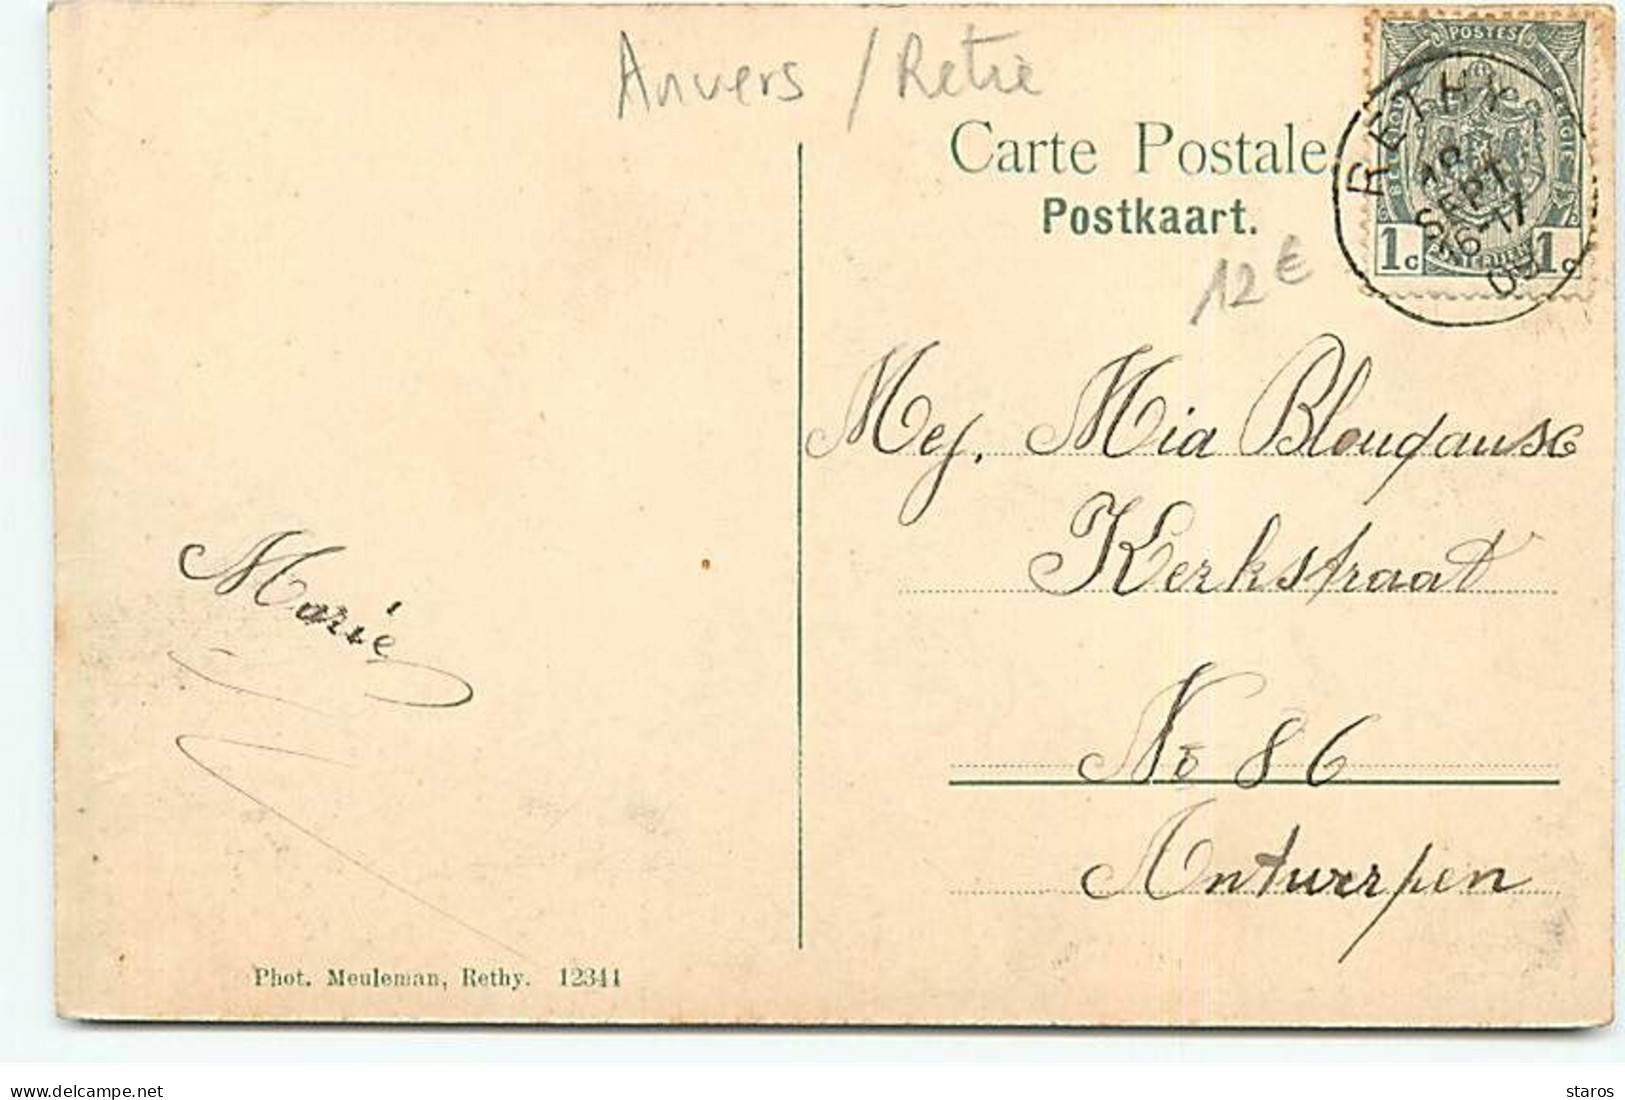 Anvers / Retie
Carte Postale
Postkaart.
12 €
POSTES
RETHY
SEPT
16-17
09
1c 1c
Mej. Mia
Kerkstraat
No 86
Antwerpen
Marie
Phot. Meuleman, Rethy. 12344
delcampe.net
staros